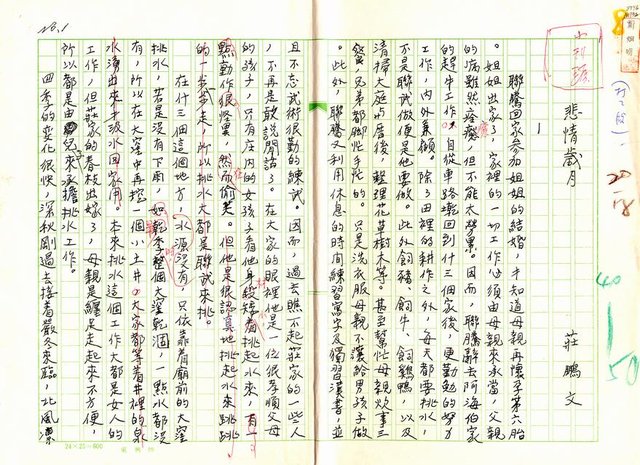 悲情歲月
莊鵬文
1
聯騰回家參加姐姐的結婚，才知道母親再懷孕第六胎
。姐姐出家了，家裡的一切工作必須由母親來承當，父親
的病雖然痊癒，但不能太勞累。因而，聯騰辭去阿海伯家
的趕牛工作。自從車路墘回到什三個家後，更勤勉的努力
工作，內外兼顧。除了田裡的耕作之外，每天都要挑水，
不是聯試做便是他要做。此外飼豬、飼牛、飼鷄鴨，以及
清掃大庭埕、屋後，整理花草樹木等。甚至幫忙母親炊事三
餐，兄弟都腳忙手忙的。只是洗衣服母親不讓給男孩子做
。此外，聯騰又利用休息的時間練習寫字及獨習漢書，並
且不忘武術很勤的練試。因而，過去瞧不起莊家的一些人
，不再是敢說閒話了。在大家的眼裡他是一位很孝順父母
的孩子，只有庄內的女孩子看他身段接着挑起水來，有一
點動作很怪異，然而偷笑。但他是很認真地挑起水來跳跳
的一步步走，所以挑水大都是聯試來挑。
在什三個這個地方，水源沒有，只依靠着廟前的大窪
挑水，若是沒有下雨，如乾季整個大窪乾涸，一點水都沒
有，所以在大窪中再挖一個小土井，大家都等着井裡的泉
水湧出來才汲水回家用。本來挑水這個工作大都是女人的
工作，但莊家的春枝出嫁了，母親是纏足走起來不方便，
所以都是由兒來承擔挑水工作。
四季的变化很快，深秋剛過去接着嚴冬來臨，北風凜
No.1
24×25=600
40
50